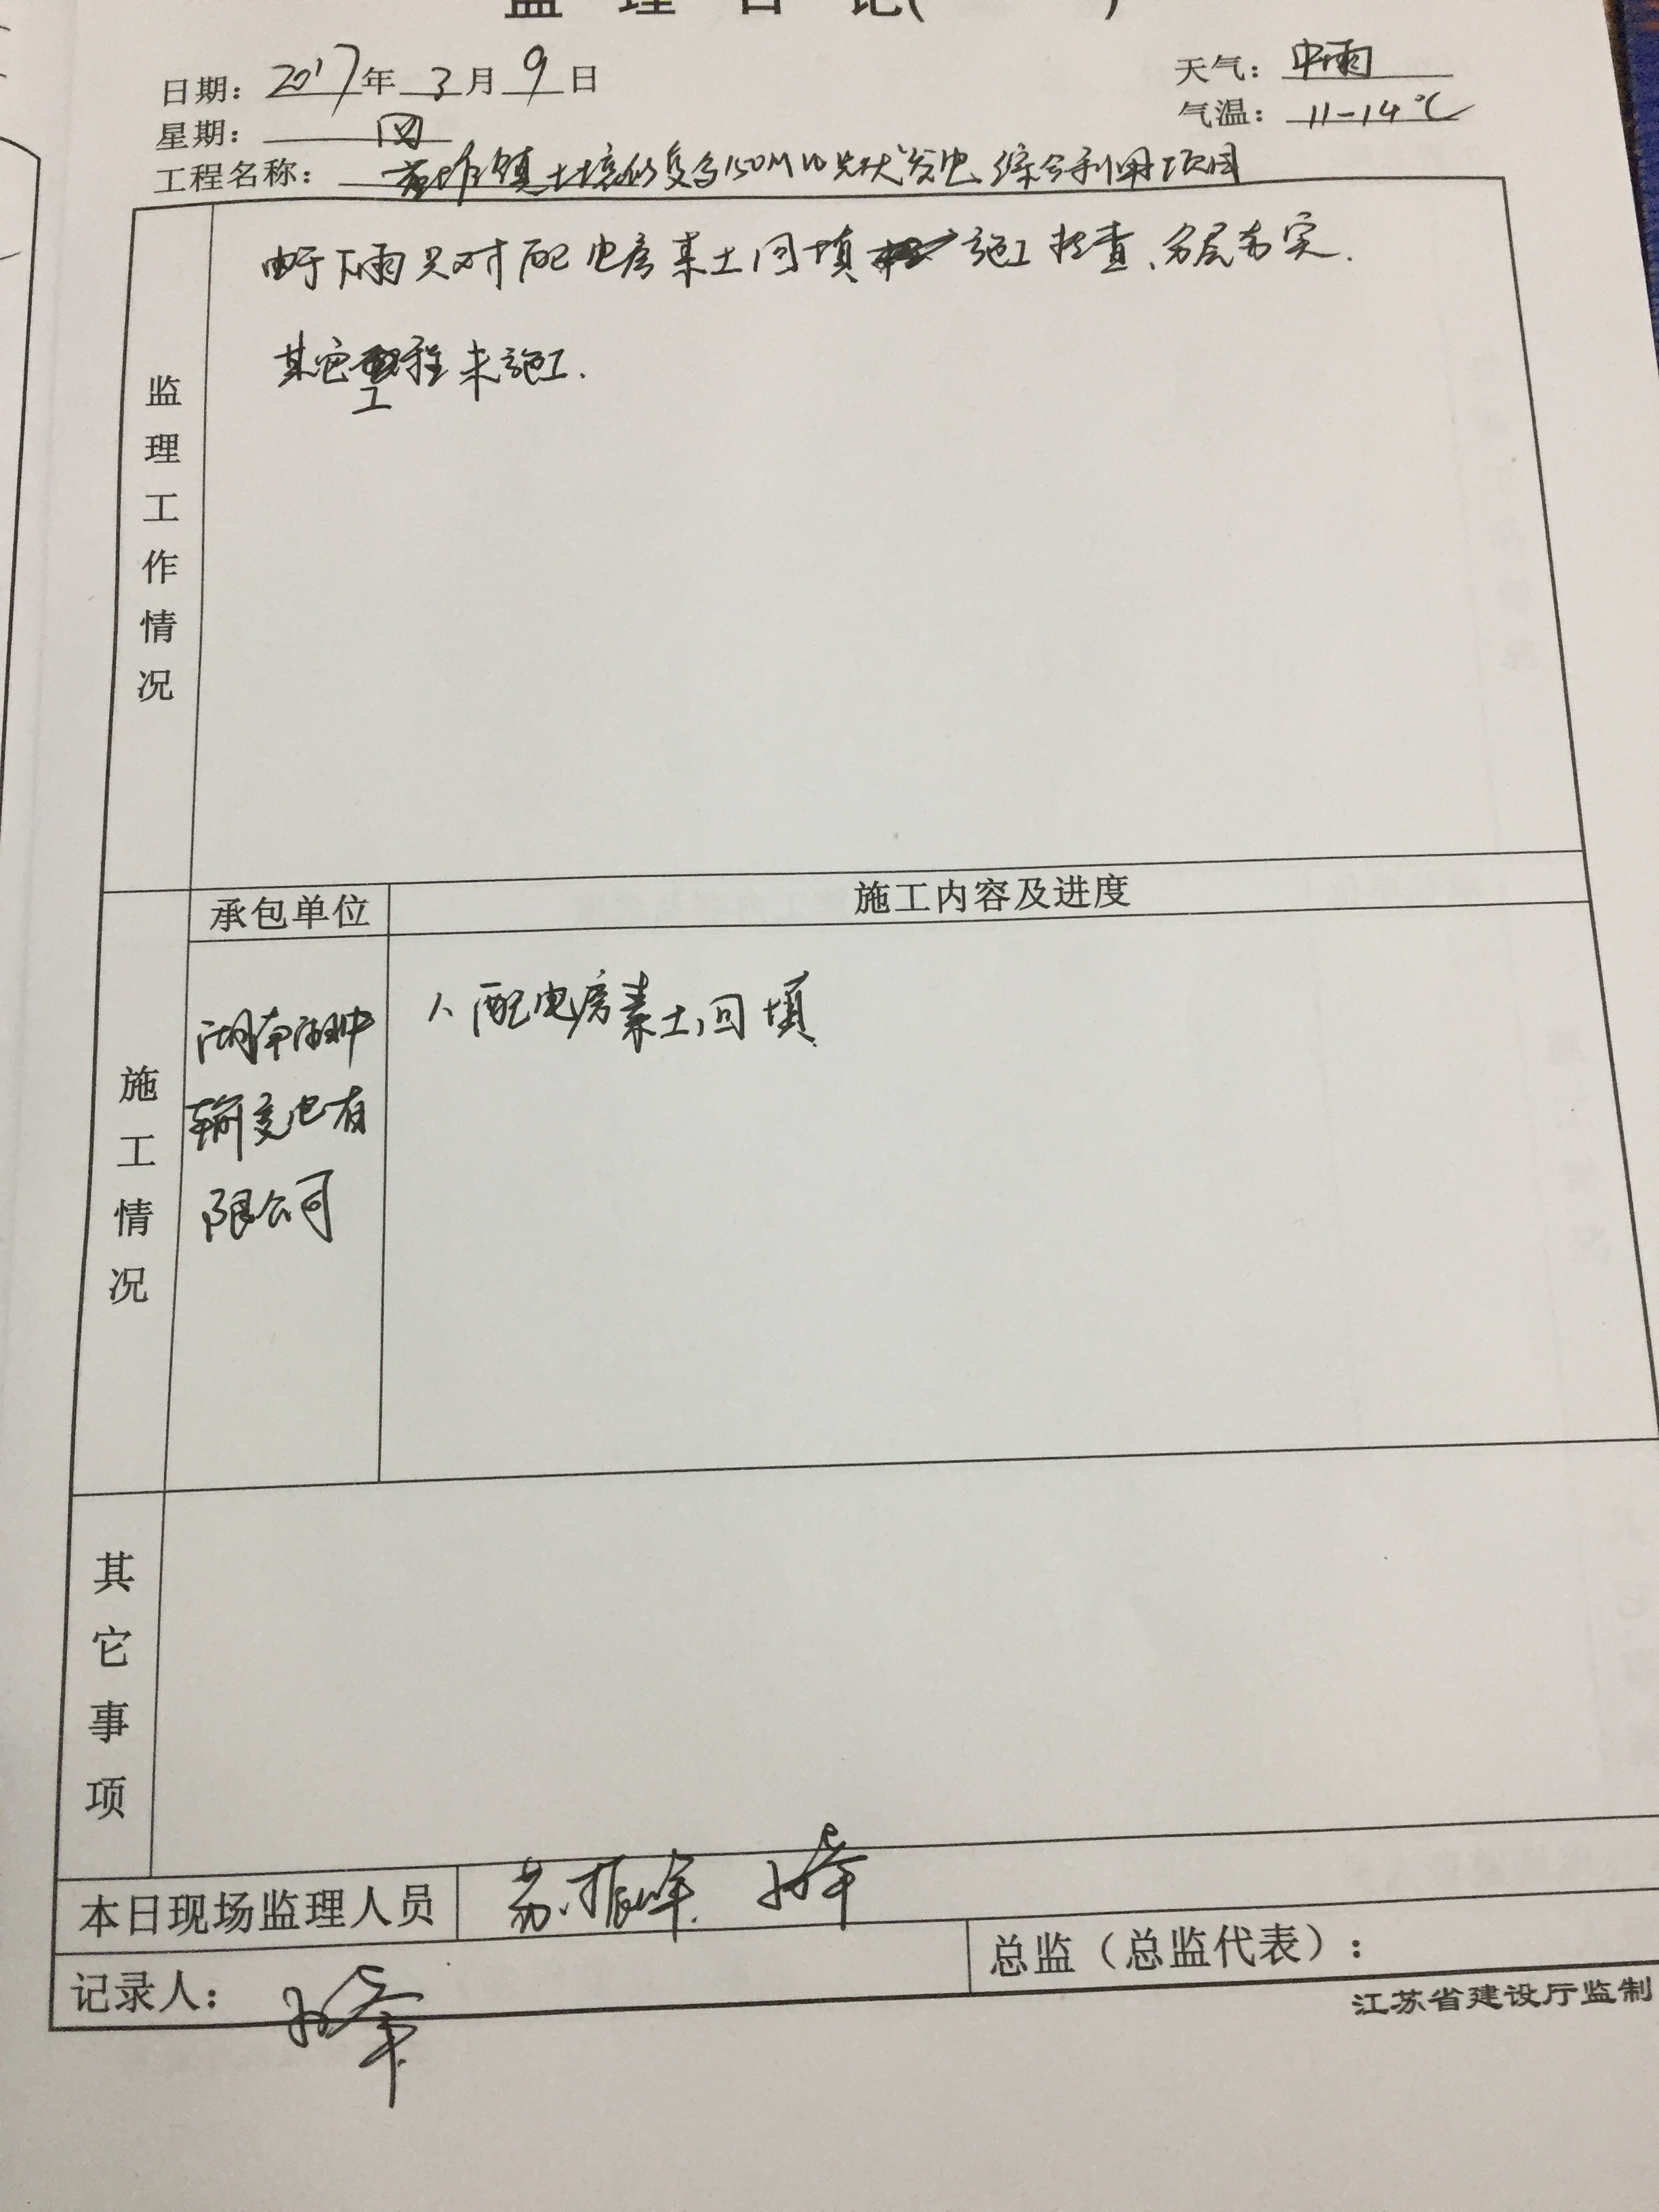 监 理 日 记( )
日期：2017年 3月 9日
天气：中雨
星期：四
气温：11-14℃
工程名称：镇土壤修复与150MW光伏发电综合利用项目
监理工作情况
由于下雨只对配电房素土回填施工检查、分层夯实.
其它工程未施工.
施工情况
承包单位
施工内容及进度
湖南
输变电有
限公司
1、配电房素土回填
其它事项
本日现场监理人员
记录人：
总监（总监代表）：
江苏省建设厅监制